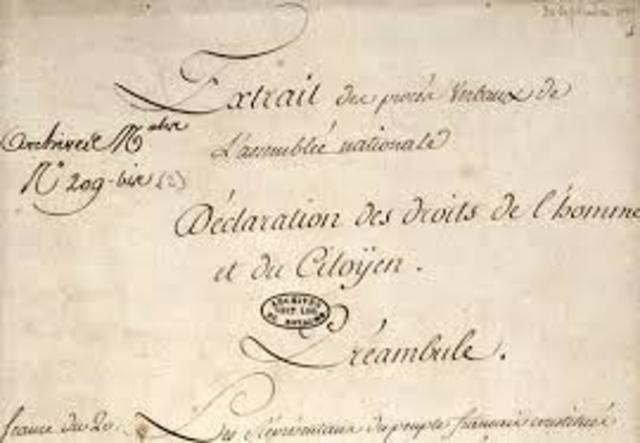 Extrait des procés Verbaux de
L'assemblée nationale
Archives N^ales
N° 209-bis (2)
Déclaration des droits de l'homme
et du Citoÿen.
ARCHIVES
DU ROYAUME
Préambule.
séance du 20.
Les Représentans du peuple francais constitués